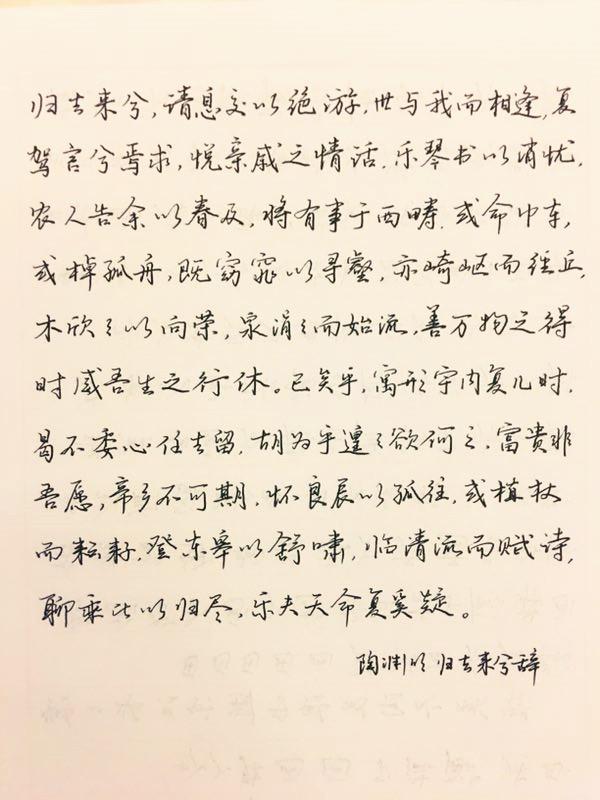 归去来兮,请息交以绝游,世与我而相逢,复
驾言兮焉求,悦亲戚之情话,乐琴书以消忧,
农人告余以春及,将有事于西畴.或命巾车,
或棹孤舟,既窈窕以寻壑,亦崎岖而经丘,
木欣々以向荣,泉涓々而始流,善万物之得
时感吾生之行休。已矣乎,寓形宇内复几时,
曷不委心任去留,胡为乎遑々欲何之.富贵非
吾愿,帝乡不可期,怀良辰以孤往,或植杖
而耘耔.登东皋以舒啸,临清流而赋诗,
聊乘化以归尽,乐夫天命复奚疑。
陶渊明 归去来兮辞